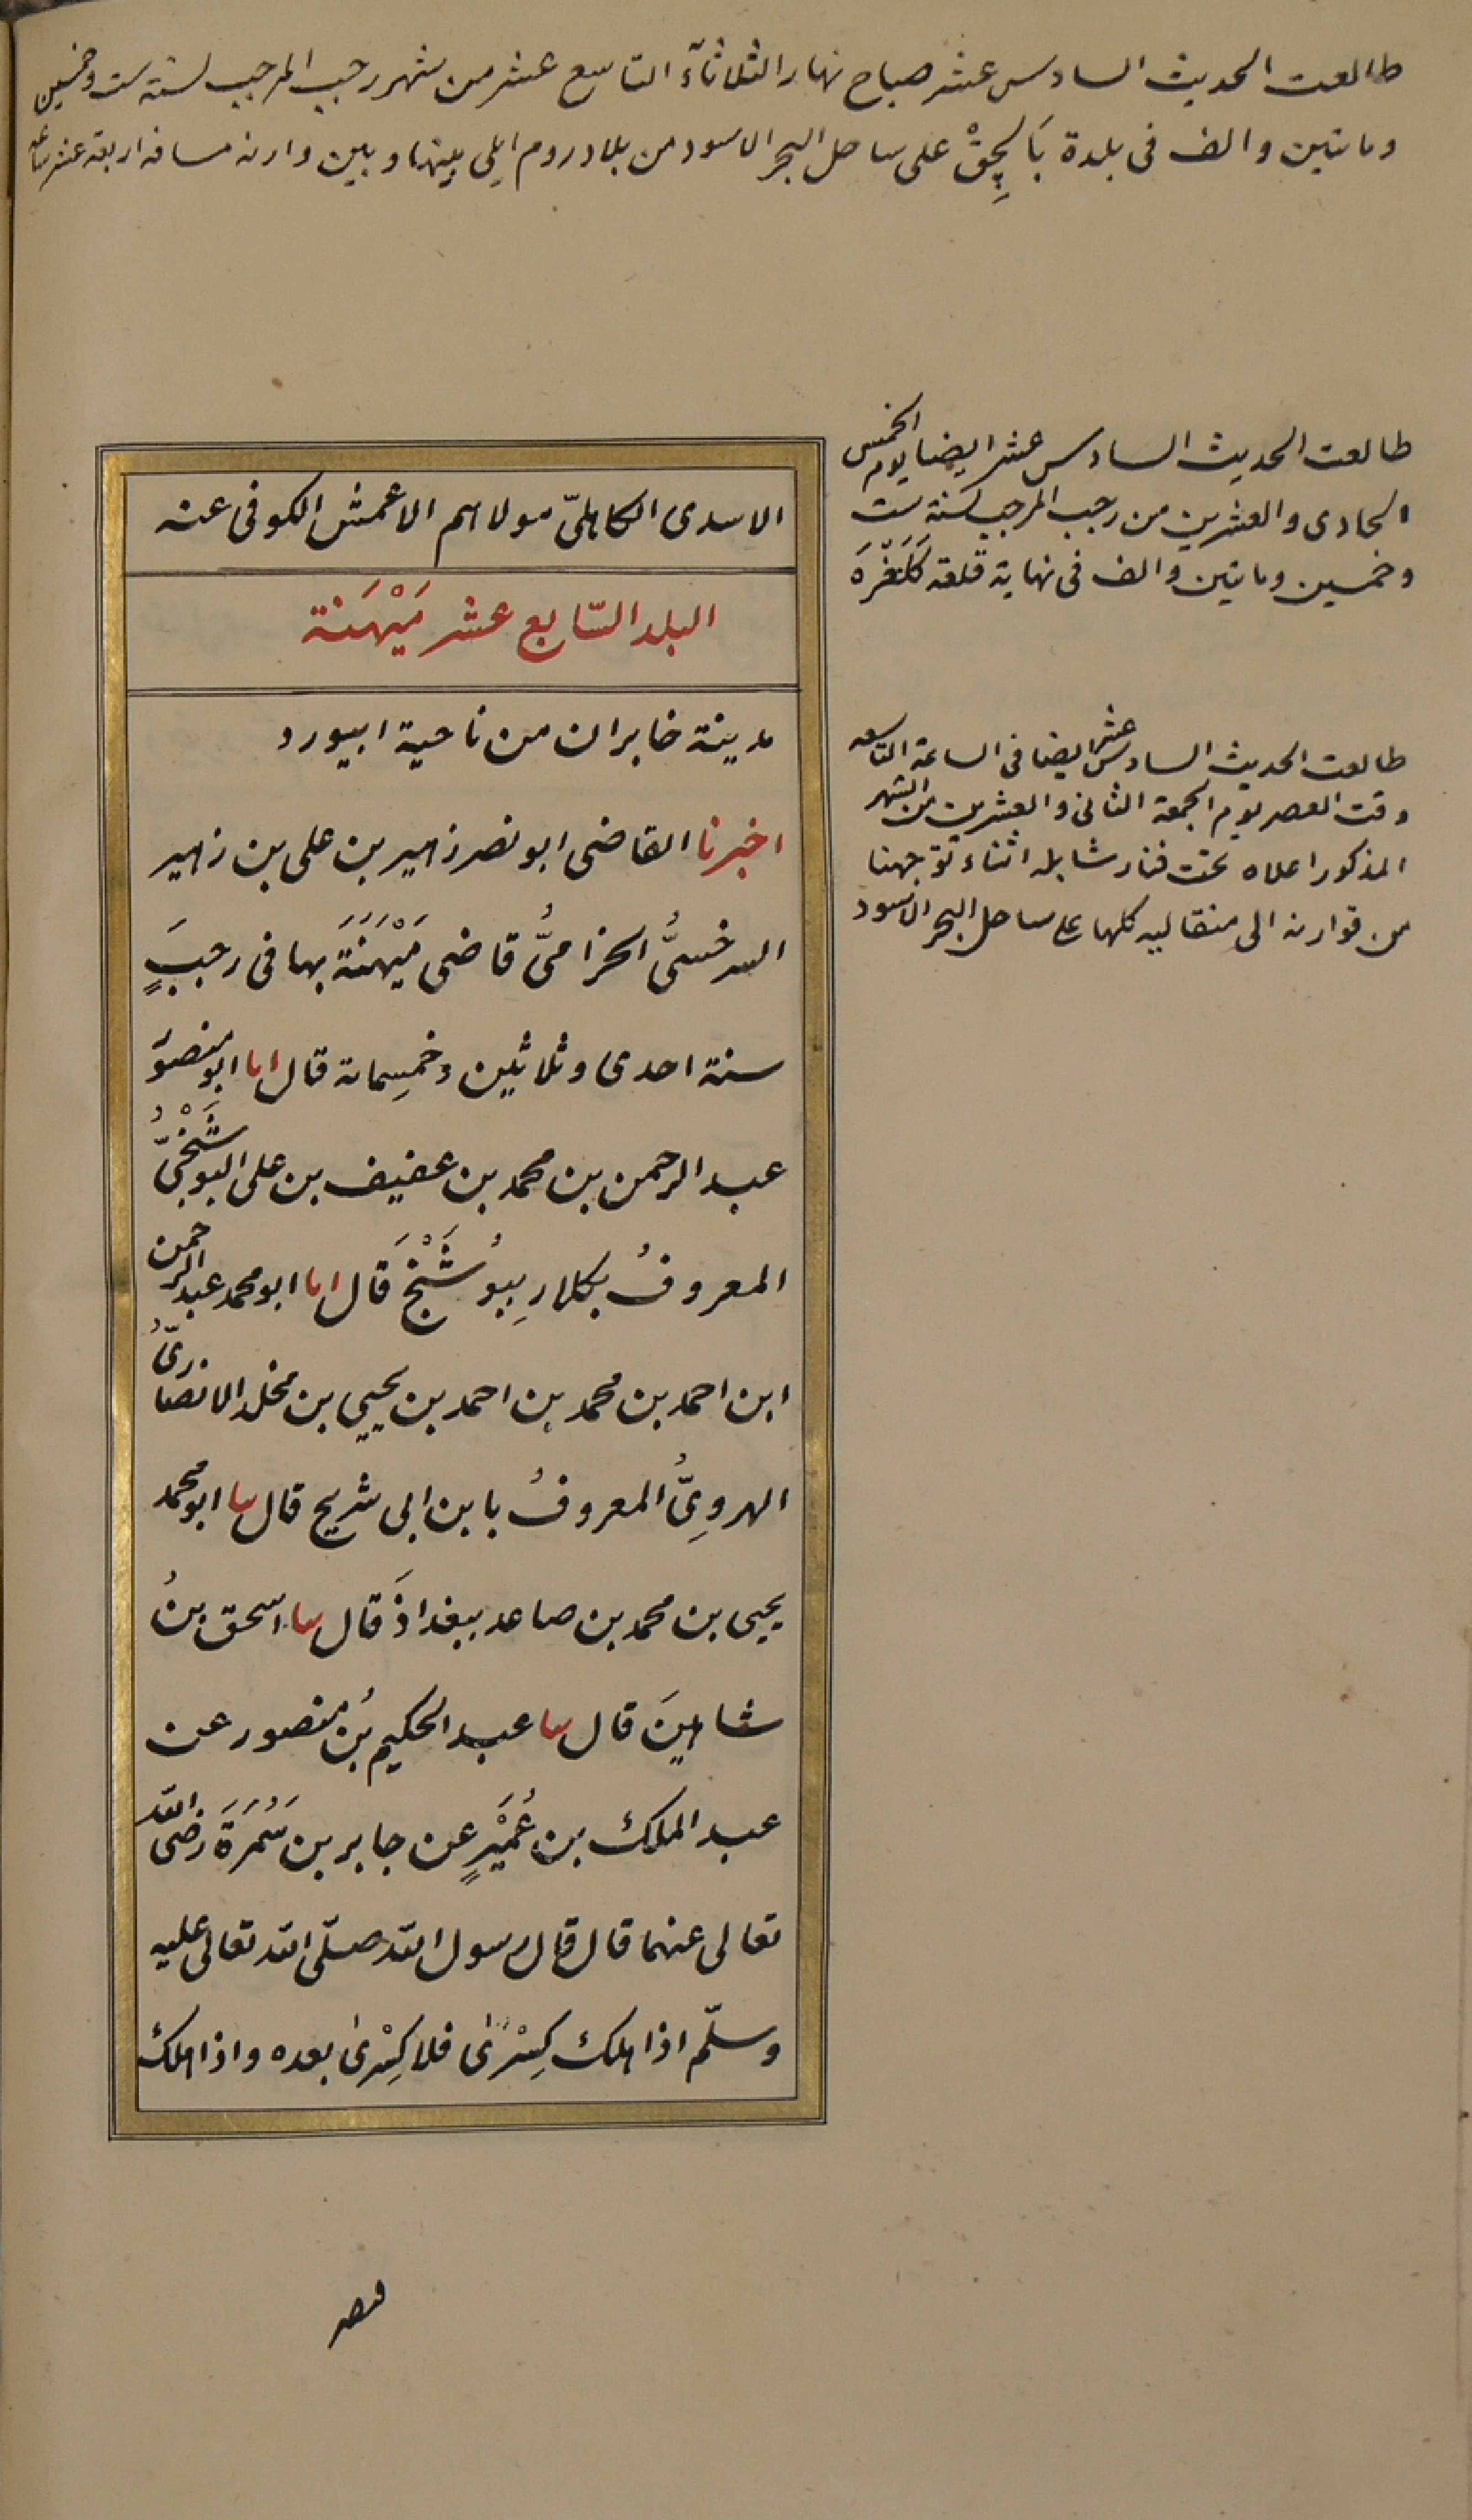 طالعت الحديث السادس عشر صباح نهار الثلاثآء التاسع عشر من شهر رجب المرجب لسنة ست وخمسين
ومايتين والف فى بلدة بَالچِقْ على ساحل البحر الاسود من بلاد روم ايلى بينها وبين وارنه مسافه اربعة عشر ساعه
طالعت الحديث السادس عشر ايضا يوم الخميس
الحادى والعشرين من رجب المرجب لسنة ست
وخمسين ومايتين والف فى نهاية قلعة كَلَغْرَه
طالعت الحديث السادس عشر ايضا فى الساعة التاسعه
وقت العصر يوم الجمعة الثانى والعشرين من الشهر
المذكور اعلاه تحت فنار شابله اثناء توجهنا
من قوارنه الى منقاليه كلها على ساحل البحر الاسود
الاسدى الكاهلىّ مولاهم الاعمش الكوفى عنه
البلد السّابع عشر مَيْهَنة
مدينة خابران من ناحية ابيورد
اخبرنا القاضى ابو نصر زهير بن على بن زهير
السرخسىُّ الخزامىُّ قاضى مَيْهَنَةَ بها فى رجبٍ
سنة احدى وثلاثين وخمسِماية قال ابا ابو منصورٍ
عبد الرحمن بن محمد بن عفيف بن على البوشَنْجىُّ
المعروفُ بكلارِ ببوُشَنْجَ قَال ابا ابو محمد عبد الرحمن
ابن احمد بن محمد بن احمد بن يحيى بن مخلد الانصارىُّ
الهروِىُّ المعروفُ بابن ابى شريح قال سا ابو محمد
يحيى بن محمد بن صاعد ببغداذَ قال سا اسحق بنُ
شاهينَ قال سا عبد الحكيم بنُ منصور عن
عبد الملك بن عُمَيْرٍ عن جابر بن سَمُرَةَ رضى الله
تعالى عنهما قال قال رسول الله صلّى الله تعالى عليه
وسلّم اذا هلك كِسْرىٰ فلا كِسْرىٰ بعده واذا هلك
قيصر